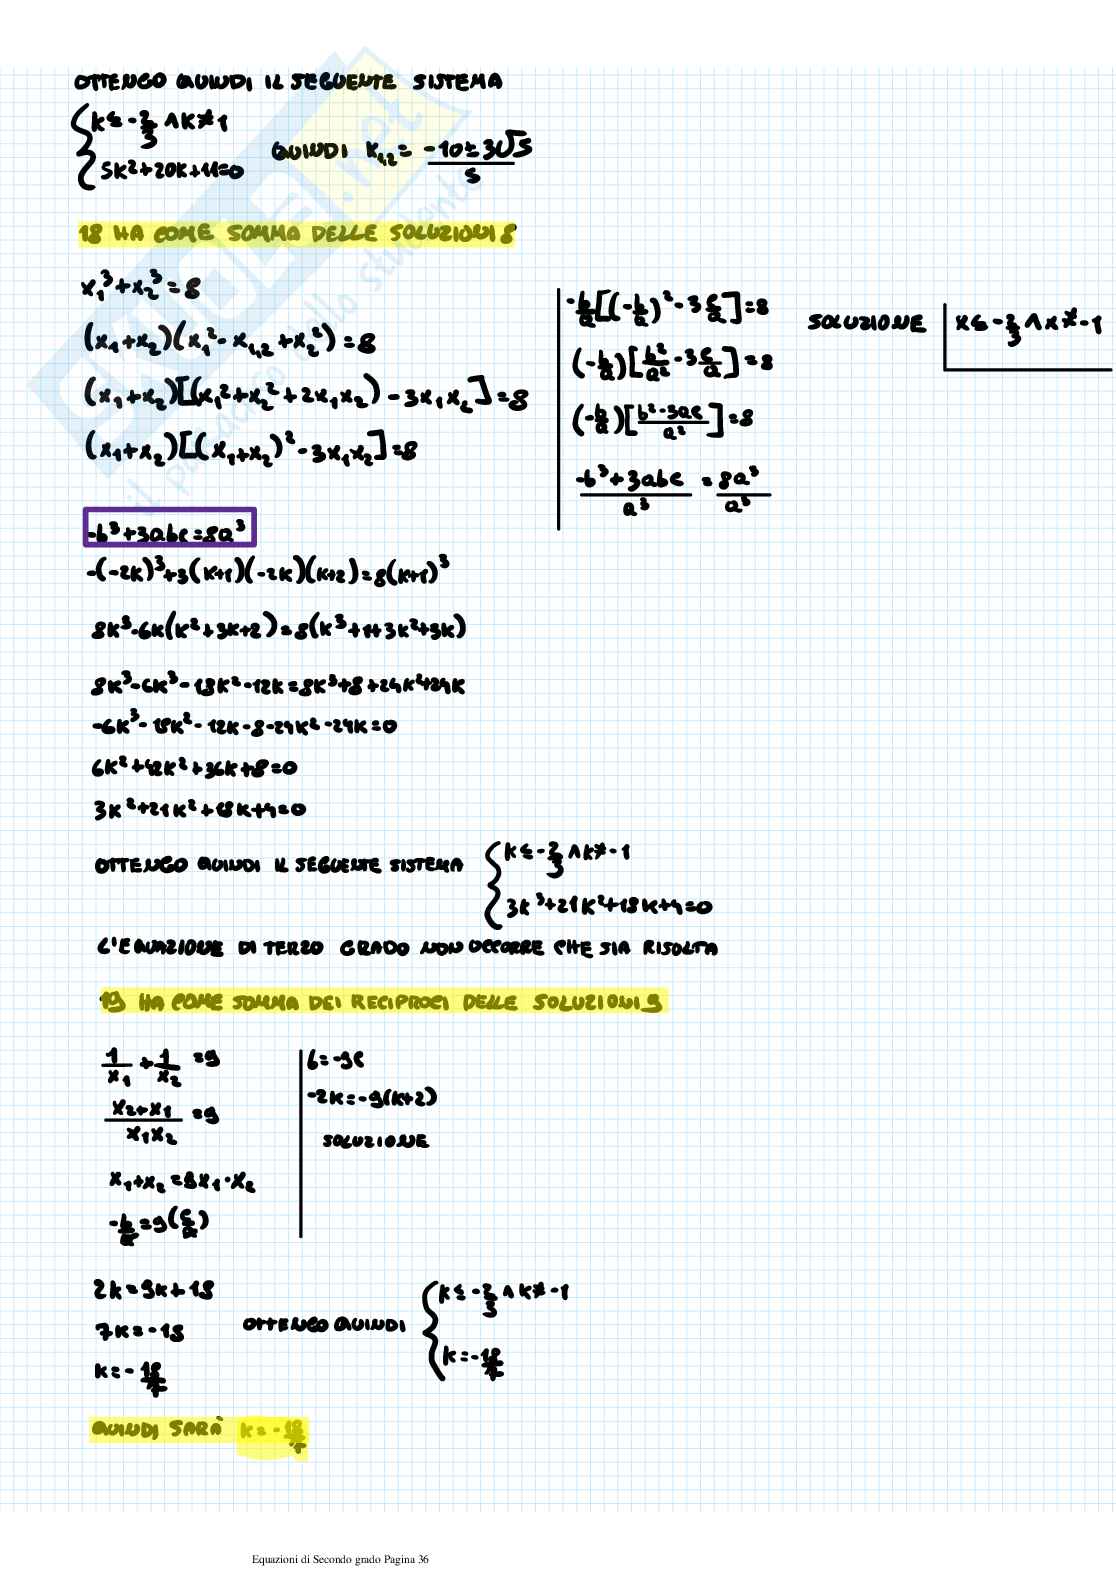 OTTENGO QUINDI IL SEGUENTE SISTEMA
{ K ≤ -2/3 ∧ K ≠ 1
{ 5K² + 20K + 11 = 0
QUINDI K₁,₂ = (-10 ± 3√5)/5
18 HA COME SOMMA DELLE SOLUZIONI 8
x₁³ + x₂³ = 8
(x₁ + x₂)(x₁² - x₁,₂ + x₂²) = 8
(x₁ + x₂)[(x₁² + x₂² + 2x₁x₂) - 3x₁x₂] = 8
(x₁ + x₂)[(x₁ + x₂)² - 3x₁x₂] = 8
-b/a[(-b/a)² - 3c/a] = 8
(-b/a)[b²/a² - 3c/a] = 8
(-b/a)[(b² - 3ac)/a²] = 8
(-b³ + 3abc)/a³ = 8a³/a³
SOLUZIONE
x ≤ -2/3 ∧ x ≠ -1
-b³ + 3abc = 8a³
-(-2K)³ + 3(K+1)(-2K)(K+2) = 8(K+1)³
8K³ - 6K(K² + 3K + 2) = 8(K³ + 1 + 3K² + 3K)
8K³ - 6K³ - 18K² - 12K = 8K³ + 8 + 24K² + 24K
-6K³ - 18K² - 12K - 8 - 24K² - 24K = 0
6K² + 42K² + 36K + 8 = 0
3K² + 21K² + 18K + 4 = 0
OTTENGO QUINDI IL SEGUENTE SISTEMA
{ K ≤ -2/3 ∧ K ≠ -1
{ 3K³ + 21K² + 18K + 4 = 0
L'EQUAZIONE DI TERZO GRADO NON OCCORRE CHE SIA RISOLTA
19 HA COME SOMMA DEI RECIPROCI DELLE SOLUZIONI 9
1/x₁ + 1/x₂ = 9
(x₂ + x₁)/(x₁x₂) = 9
x₁ + x₂ = 9x₁ · x₂
-b/a = 9(c/a)
b = -9c
-2K = -9(K+2)
SOLUZIONE
2K = 9K + 18
7K = -18
K = -18/7
OTTENGO QUINDI
{ K ≤ -2/3 ∧ K ≠ -1
{ K = -18/7
QUINDI SARÀ K = -18/7
SKUOLA.net
il paradiso dello studente
Equazioni di Secondo grado Pagina 36